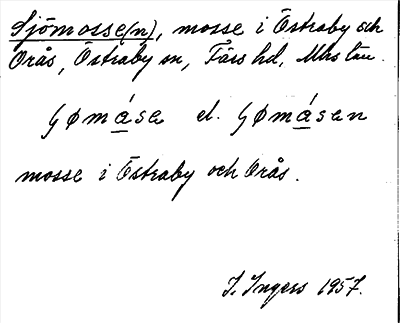 Sjömosse(n), mosse i Östraby och
Orås, Östraby sn, Färs hd, Mlhs län.
ʃømása el. ʃømásen
mosse i Östraby och Orås.
I. Ingers 1957.